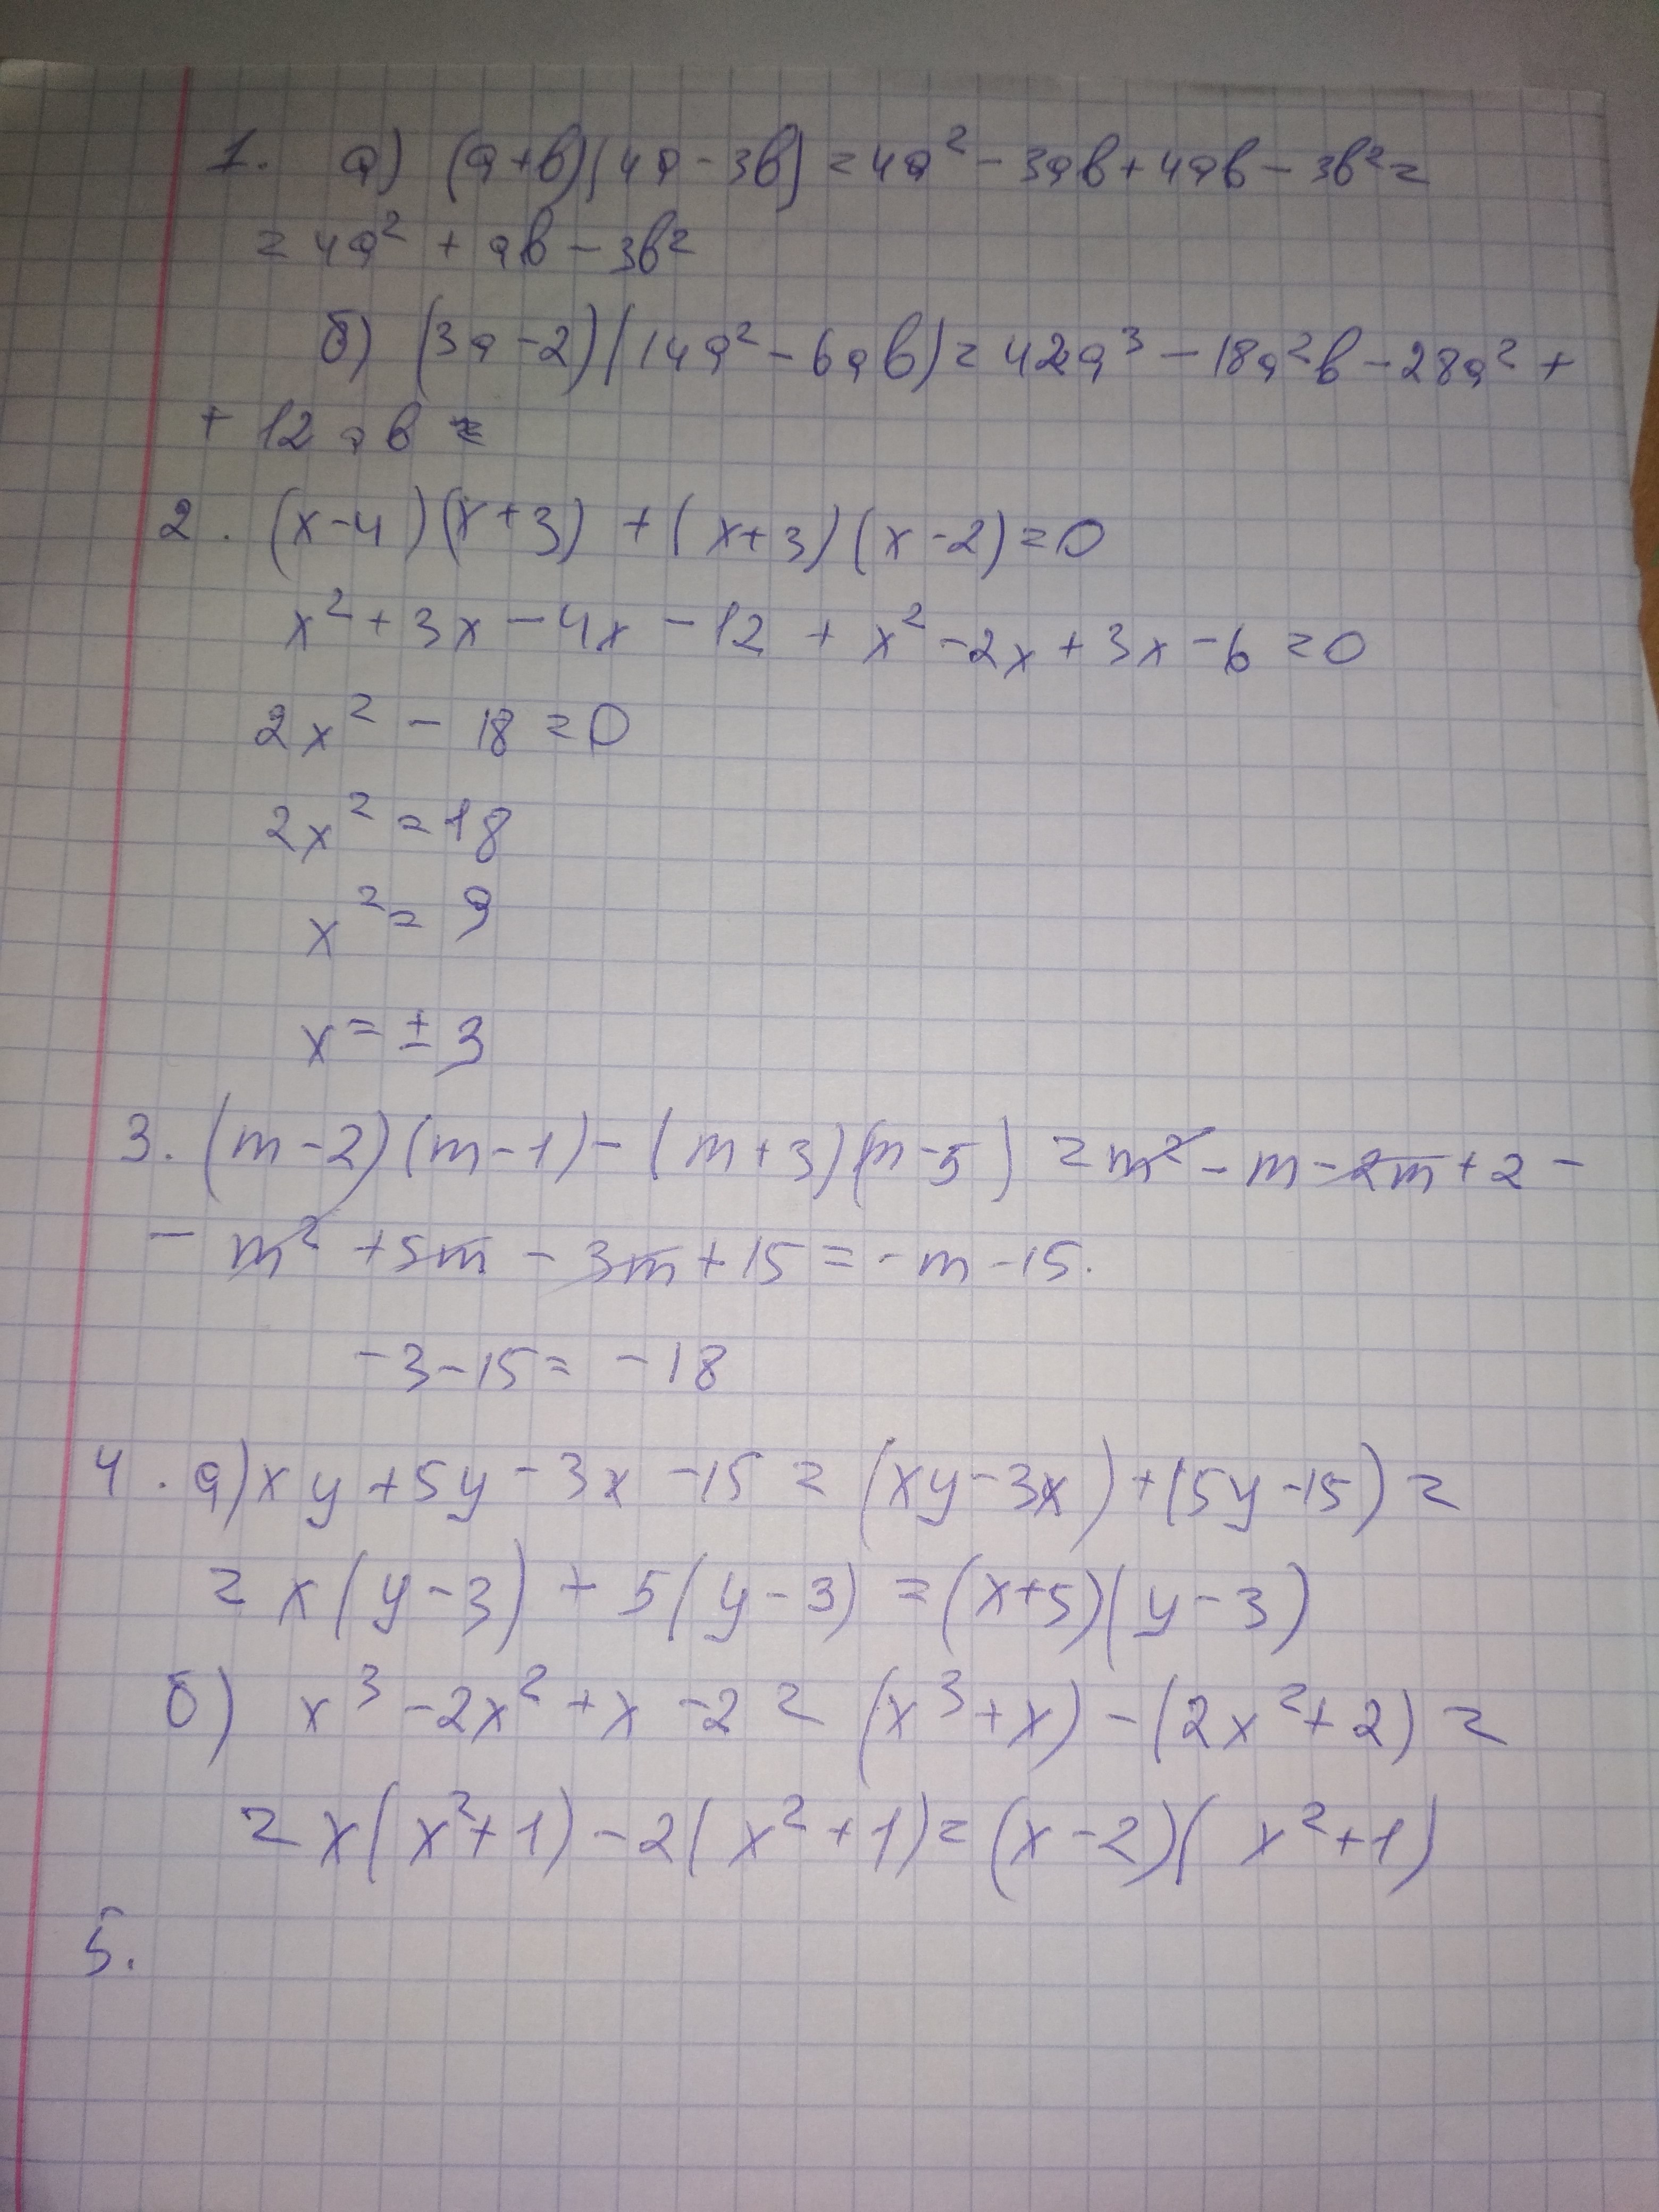 1. а) (a+b)(4a-3b)=4a²-3ab+4ab-3b²=
=4a²+ab-3b²
б) (3a-2)(14a²-6ab)=42a³-18a²b-28a²+
+12ab
2. (x-4)(x+3)+(x+3)(x-2)=0
x²+3x-4x-12+x²-2x+3x-6=0
2x²-18=0
2x²=18
x²=9
x=±3
3. (m-2)(m-1)-(m+3)(m-5)=m²-m-2m+2-
-m²+5m-3m+15=-m-15.
-3-15=-18
4. а) xy+5y-3x-15=(xy-3x)+(5y-15)=
=x(y-3)+5(y-3)=(x+5)(y-3)
б) x³-2x²+x-2=(x³+x)-(2x²+2)=
=x(x²+1)-2(x²+1)=(x-2)(x²+1)
5.